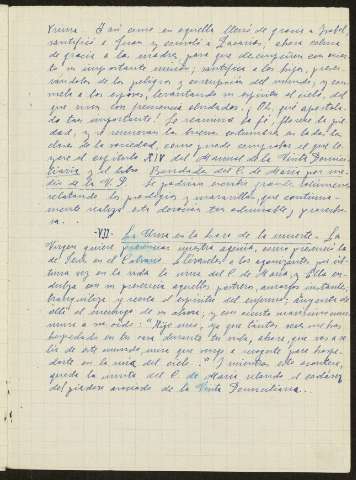 Urna. Y así como en aquella llenó de gracia a Isabel,
santificó a Juan y convirtió a Zacarías, ahora colma
de gracia a las madres, para que desempeñen con acier-
to su importante misión; santifica a los hijos, preser-
vándolos de los peligros y corrupción del mundo; y con-
suela a los esposos, levantando su espíritu al cielo, del
que viven con frecuencia olvidados. ¡Oh, qué apostola-
do tan importante! Se reanima la fé, florece la pie-
dad, y se renuevan las buenas costumbres en todas las
clases de la sociedad, como puede comprobar el que le-
yere el capítulo XIV del Manual de la Visita Domici-
liaria y el libro Bondades del C. de María por me-
dio de la V. D. Se podrían escribir grandes volúmenes
relatando los prodigios y maravillas que continua-
mente realiza esta devoción tan admirable y provecho-
sa...
-VII- La Urna en la hora de la muerte.- La
Virgen quiere presenciar nuestra agonía, como presenció la
de Jesús en el Calvario. Llevadles a los agonizantes por úl-
tima vez en la vida la urna del C. de María, y Ella en-
dulza con su presencia aquellos postreros, amargos instantes;
tranquiliza y recrea el espíritu del enfermo; ahuyenta de
allí al enemigo de su alma; y con acento cariñoso mur-
mura a su oído: "Hijo mío, ya que tantas veces me has
hospedado en tu casa durante tu vida, ahora, que vas a sa-
lir de este mundo, mira que vengo a recogerte para hospe-
darte en la mía del cielo..." Y mientras esto acontece,
queda la urnita del C. de María velando el cadáver
del piadoso asociado de la Visita Domiciliaria...